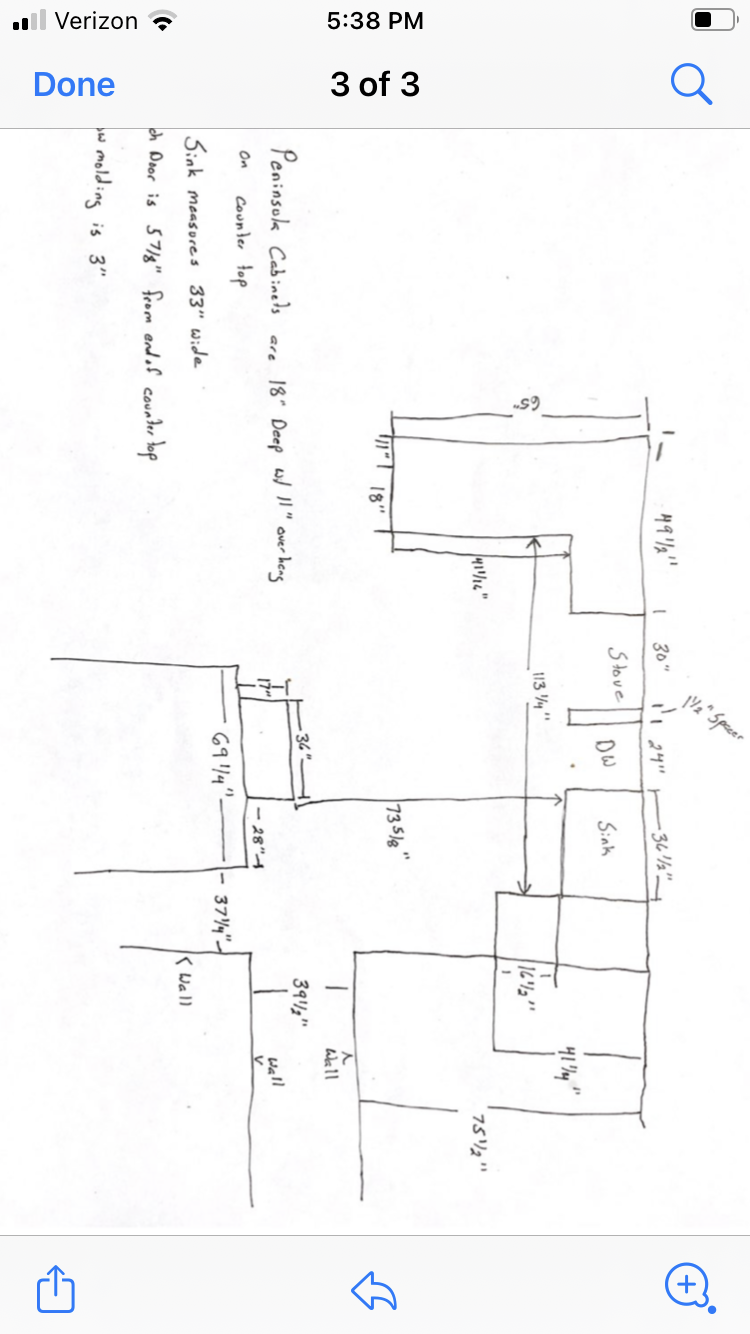 Verizon 5:38 PM
Done 3 of 3
49 1/2"
30"
1 1/2" Spacer
24"
36 1/2"
Stove
DW
Sink
65"
11"
18"
41 1/16"
113 1/4"
16 1/2"
41 1/4"
75 1/2"
73 5/8"
36"
17"
28"
69 1/4"
37 1/4"
39 1/2"
Wall
Wall
Wall
Peninsula Cabinets are 18" Deep w/ 11" overhang
on counter top
Sink measures 33" wide
ch Door is 5 7/8" from end of counter top
ow molding is 3"